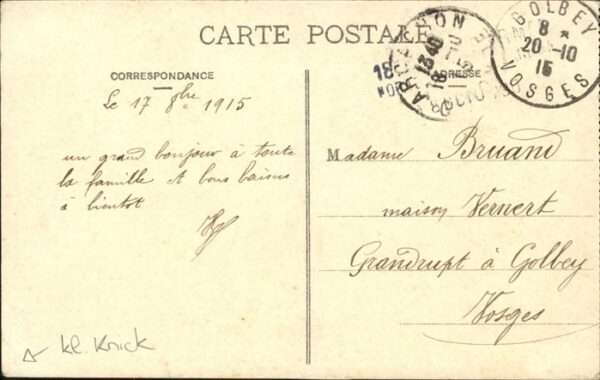 CARTE POSTALE
CORRESPONDANCE
ADRESSE
GOLBEY
8 *
20-10
15
VOSGES
ARCACHON
13 40
18
Le 17 8bre 1915
un grand bonjour à toute
la famille et bons baisers
à bientot
Madame Bruand
maison Vernert
Grandrupt à Golbey
Vosges
kl. Knick